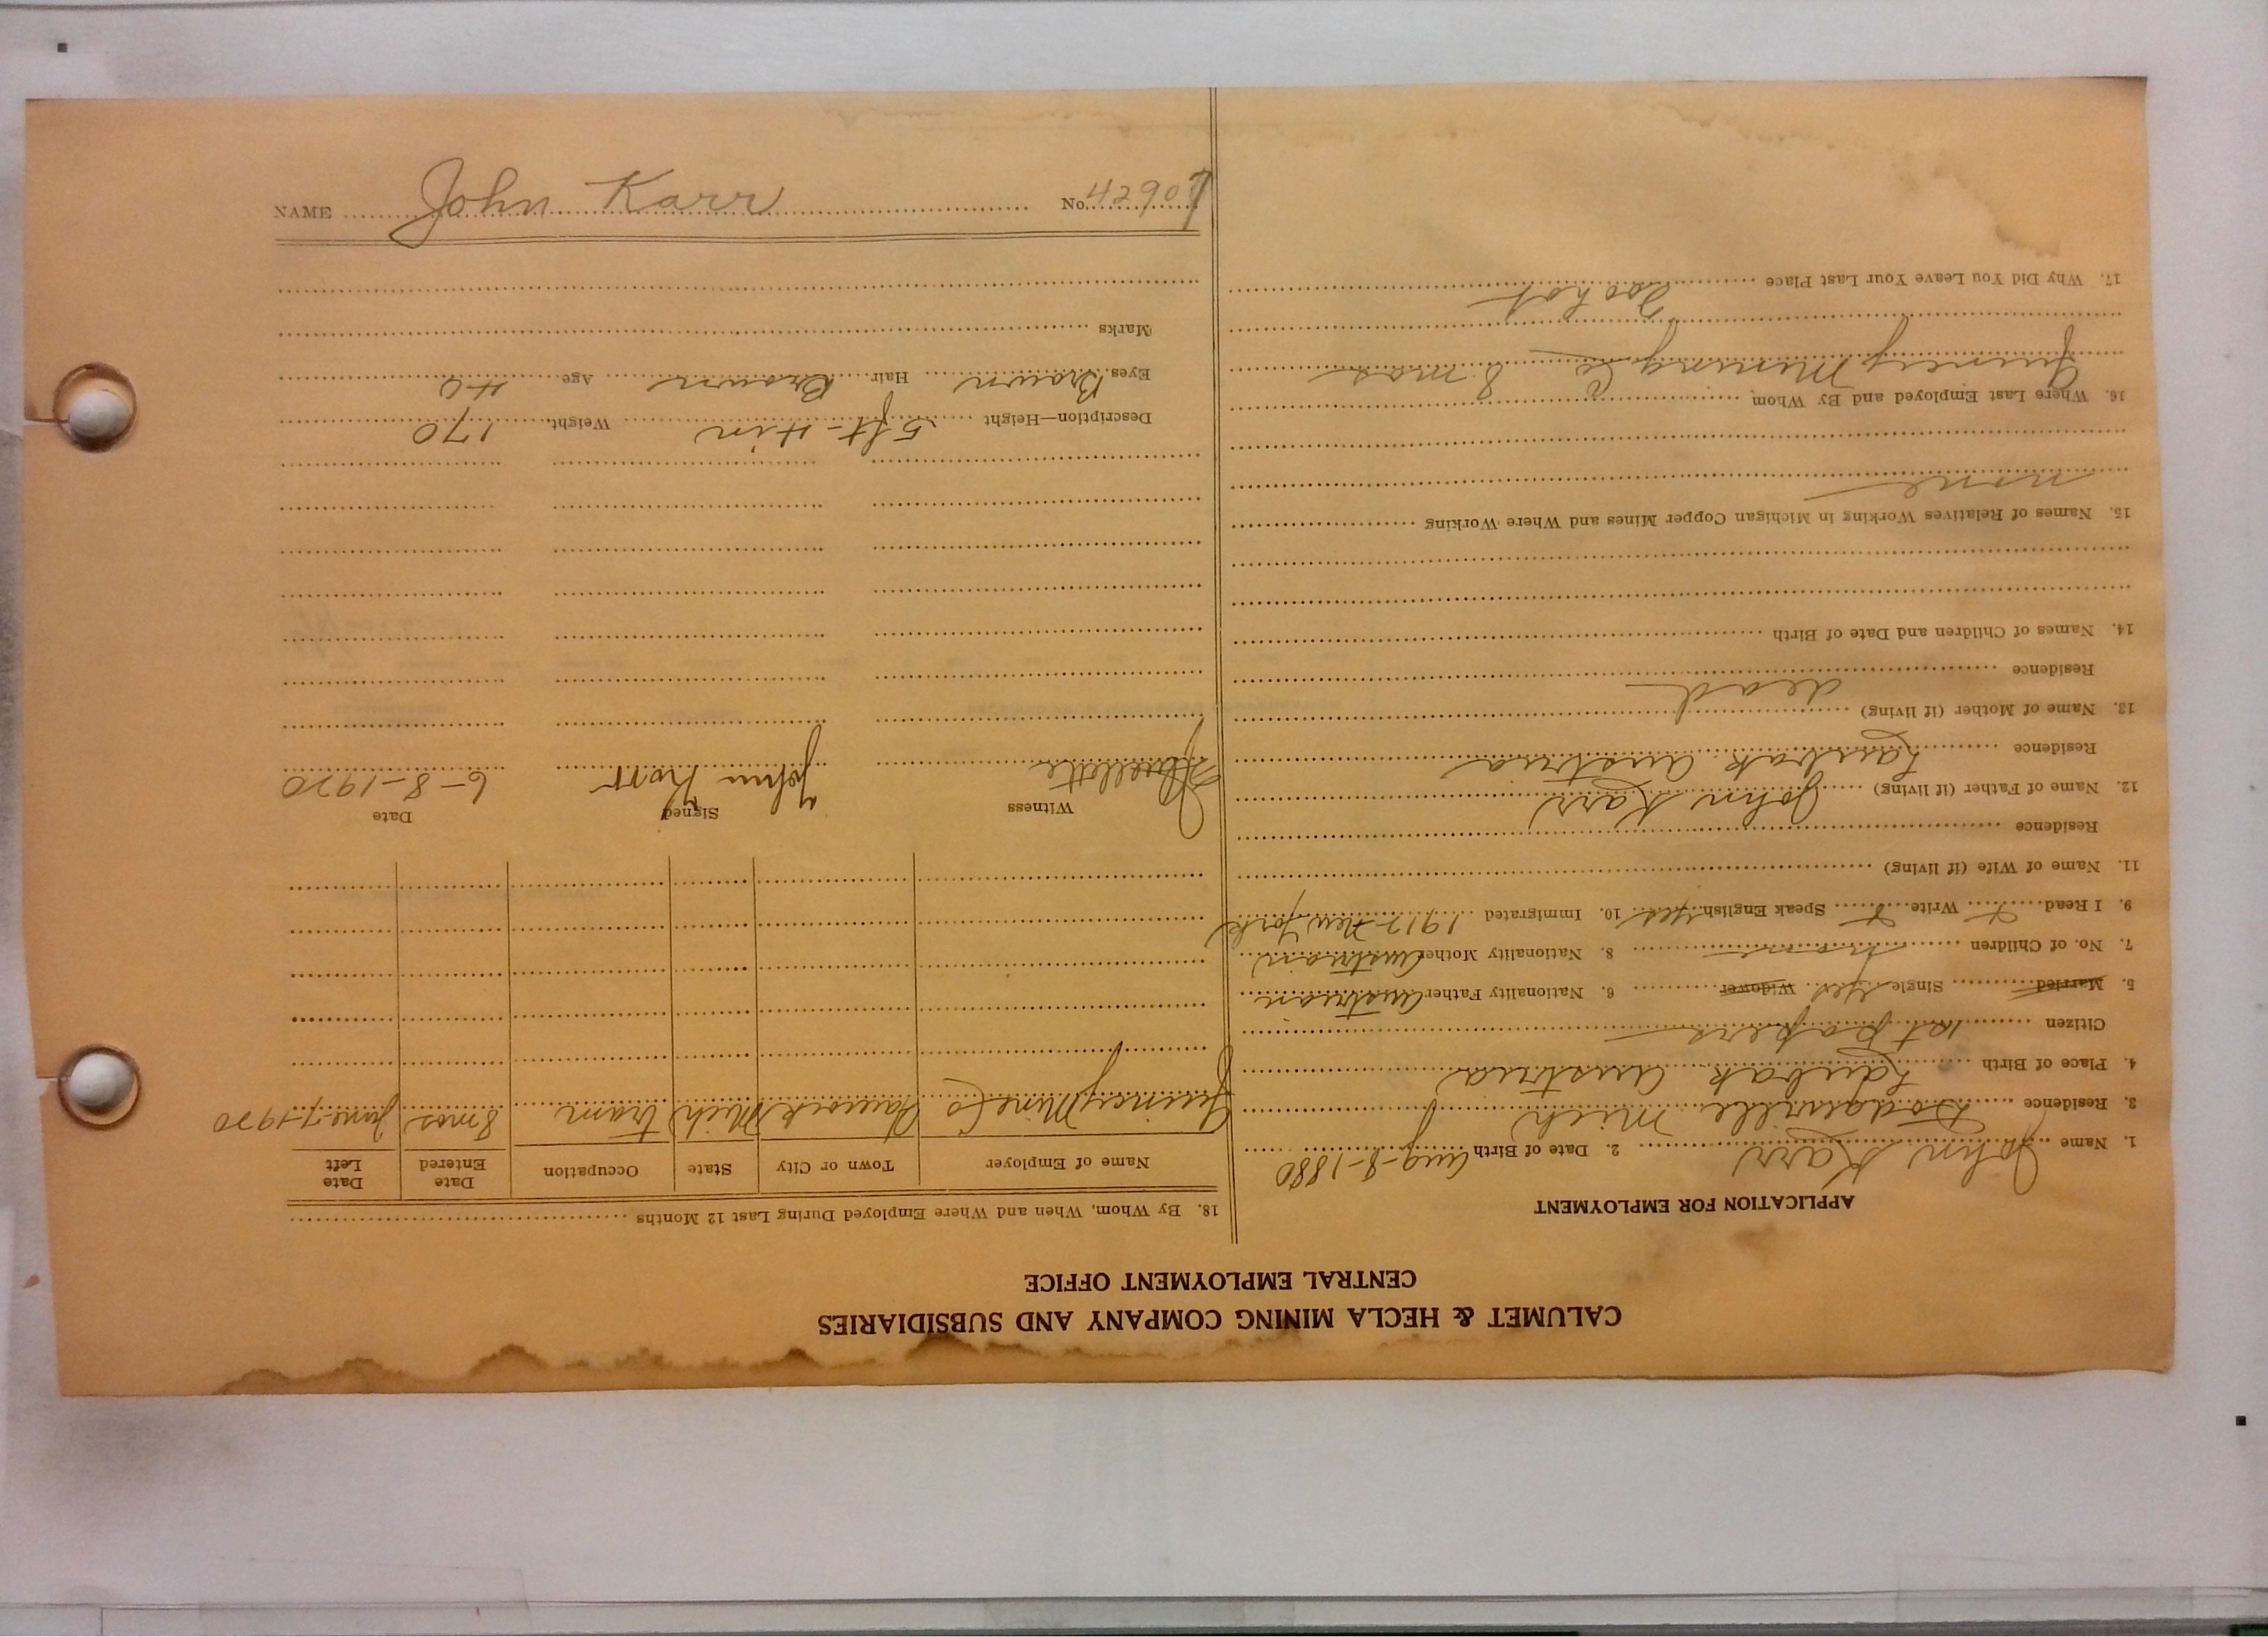 CALUMET & HECLA MINING COMPANY AND SUBSIDIARIES
CENTRAL EMPLOYMENT OFFICE
APPLICATION FOR EMPLOYMENT
1. Name John Karr 2. Date of Birth Aug-8-1880
3. Residence Dodgeville Mich
4. Place of Birth Laibak Austria
Citizen 1st papers
5. Married Single Yes Widower 6. Nationality Father Austrian
7. No. of Children none 8. Nationality Mother Austrian
9. I Read x Write x Speak English Yes 10. Immigrated 1912-New York
11. Name of Wife (if living)
Residence
12. Name of Father (if living) John Karr
Residence Laibak Austria
13. Name of Mother (if living) dead
Residence
14. Names of Children and Date of Birth
15. Names of Relatives Working in Michigan Copper Mines and Where Working
none
16. Where Last Employed and By Whom
Quincy Mining Co 8 mos
17. Why Did You Leave Your Last Place
Too hot
18. By Whom, When and Where Employed During Last 12 Months
Name of Employer Town or City State Occupation Date Entered Date Left
Quincy Mine Co Hancock Mich tram 8 mos June-7-1920
Witness Signed Date
John Karr 6-8-1920
Description—Height 5 ft-4 in Weight 170
Eyes Brown Hair Brown Age 40
Marks
NAME John Karr No. 42907